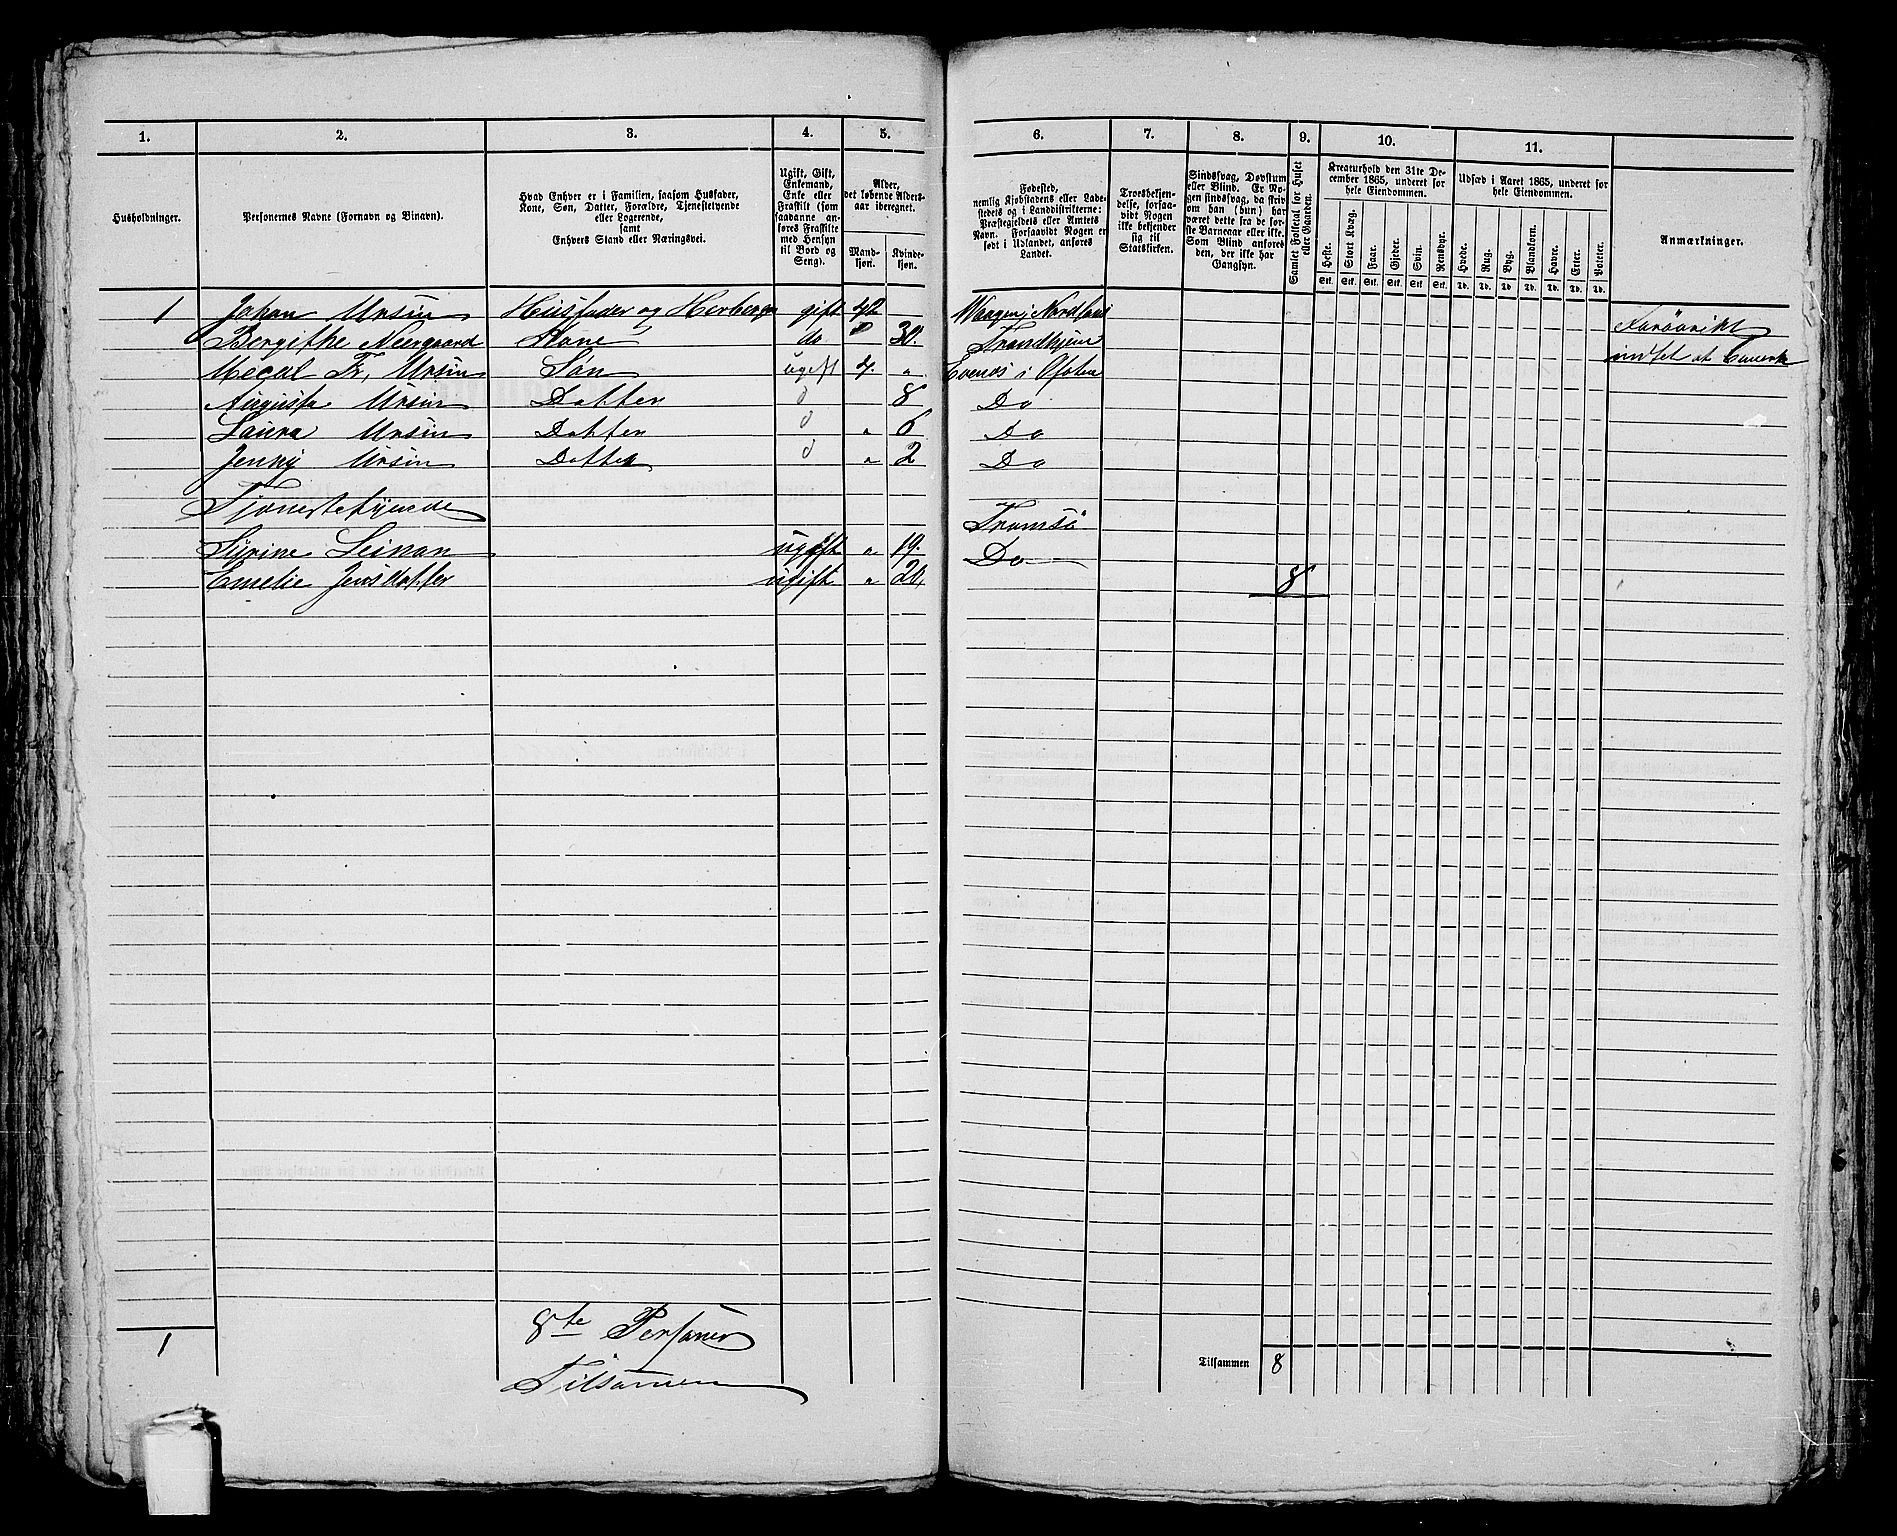 1. 2. 3. 4. 5. 6. 7. 8. 9. 10. 11.
Husholdninger.
Personernes Navne (Fornavn og Binavn).
Hvad Enhver er i Familien, saasom Husfader,
Kone, Søn, Datter, Forældre, Tjenestetyende
eller Logerende,
samt
Enhvers Stand eller Næringsvei.
Ugift, Gift,
Enkemand,
Enke eller
Fraskilt (som
saadanne an-
føres Fraskilte
med Hensyn
til Bord og
Seng).
Alder,
det løbende Alders-
aar iberegnet.
Mand-
kjøn.
Kvinde-
kjøn.
Fødested,
nemlig Kjøbstadens eller Lade-
stedets og i Landdistrikterne:
Præstegjeldets eller Amtets
Navn. Forsaavidt Nogen er
født i Udlandet, anføres
Landet.
Troesbekjen-
delse, forsaa-
vidt Nogen
ikke bekjender
sig til
Statskirken.
Sindssvag, Døvstum
eller Blind. Er No-
gen sindssvag, da skriv
om han (hun) har
været dette fra de før-
ste Barneaar eller ikke.
Som Blind anføres
den, der ikke har
Gangsyn.
Samlet Folketal for Huset
eller Gaarden.
Kreaturhold den 31te De-
cember 1865, underet for
hele Eiendommen.
Heste. Stort Kvæg. Faar. Gjeder. Svin. Rensdyr.
Stk. Stk. Stk. Stk. Stk. Stk.
Udsæd i Aaret 1865, underet for
hele Eiendommen.
Hvede. Rug. Byg. Blandkorn. Havre. Erter. Poteter.
Td. Td. Td. Td. Td. Td. Td.
Anmærkninger.
1 Johan Ursin Husfader og gift 42 Waagen i
Bergithe Neergaard Kone do 30. Trondhjem
Ursin Søn ugift 4. " Evenes i Ofoten
Augusta Ursin Datter d 8 Do
Laura Ursin Datter d " 6 Do
Jenny Ursin Datter d " 2 Do
Tjenestetyende
Syrine Leinan ugift " 19. Tromsö
Emelie Jensdatter ugift " Do
8
8te Personer
Tilsamen
1
Tilsammen 8